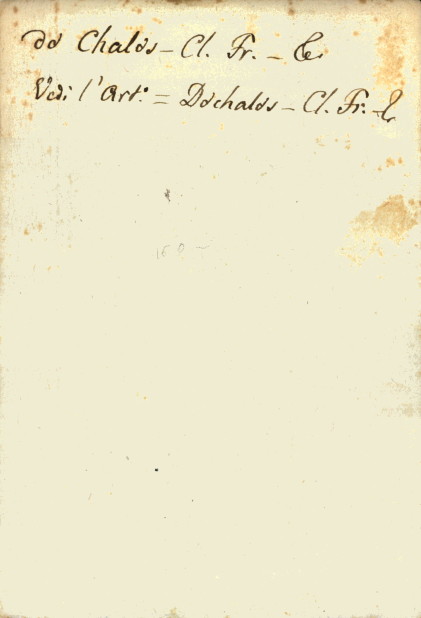 de Chales – Cl. Fr. – &c
Vedi l'Art.º = Dechales – Cl. Fr. – &c